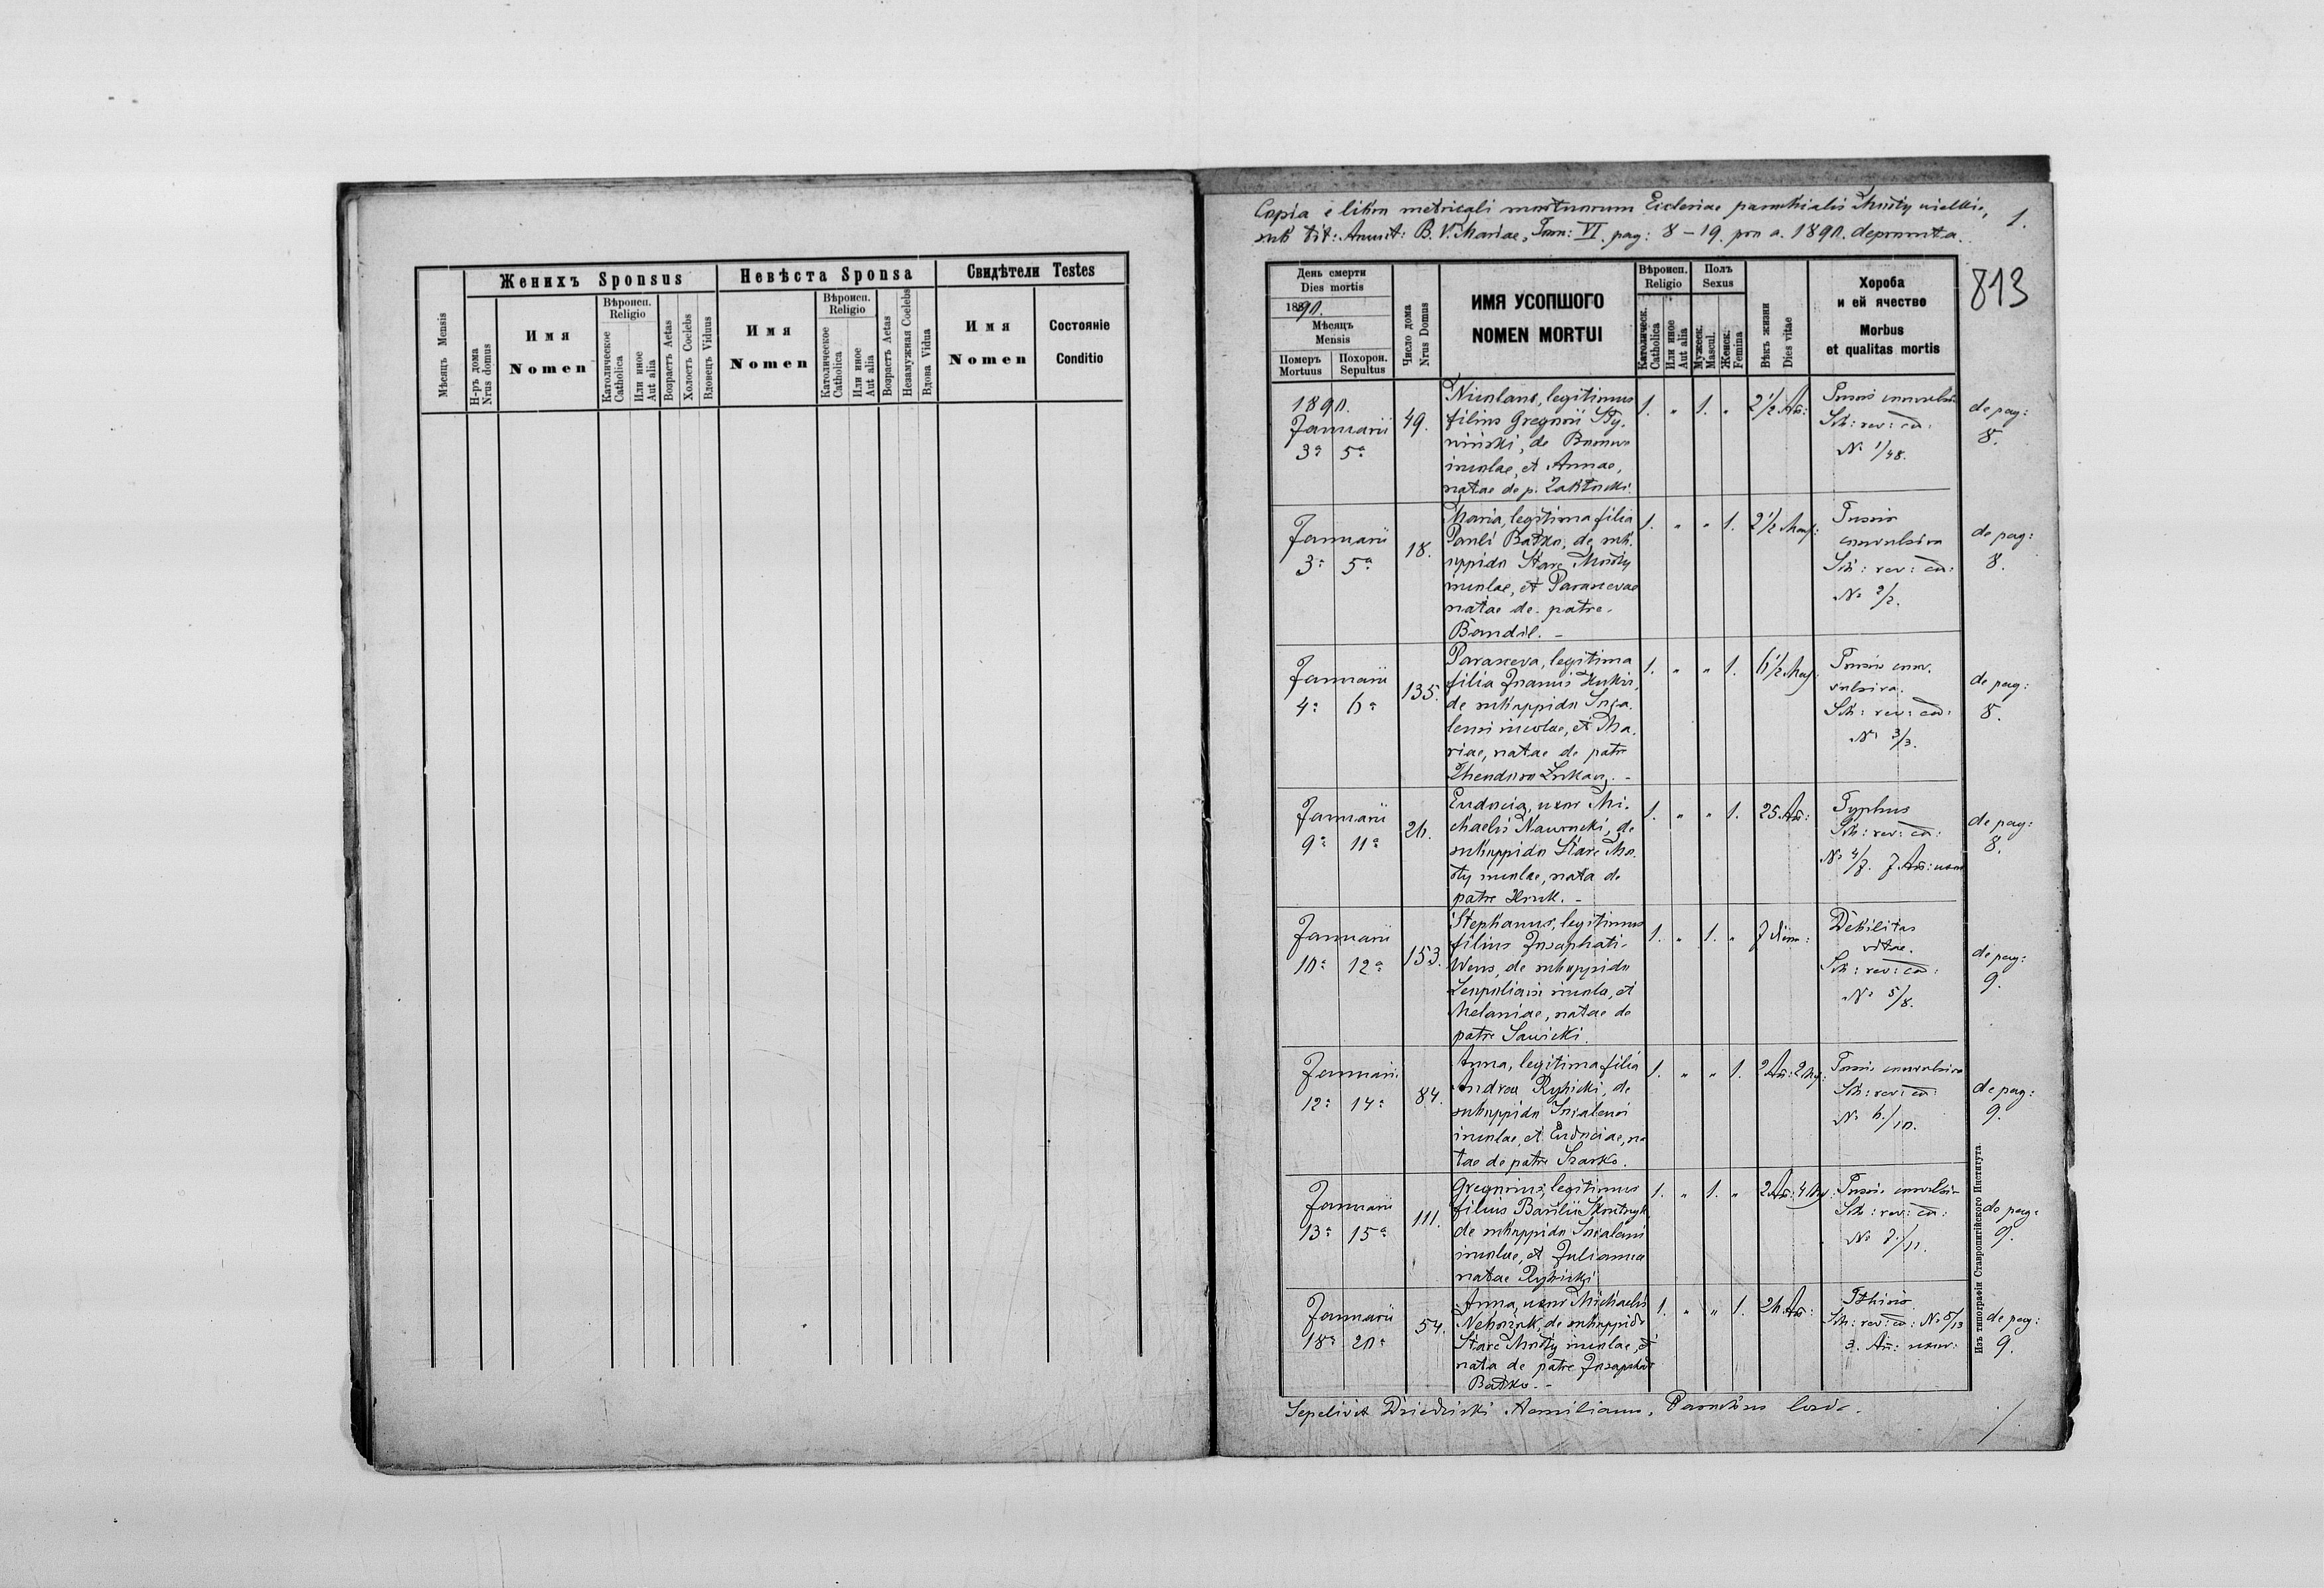 Мѣсяцъ Mensis
Женихъ Sponsus
Н-ръ дома Nrus domus
Имя
Nomen
Вѣроисп.
Religio
Католическое Catholica
Или иное Aut alia
Возрастъ Aetas
Холостъ Coelebs
Вдовецъ Viduus
Невѣста Sponsa
Имя
Nomen
Вѣроисп.
Religio
Католическое Catholica
Или иное Aut alia
Возрастъ Aetas
Незамужная Coelebs
Вдова Vidua
Свидѣтели Testes
Имя
Nomen
Состояніе
Conditio
Copia e libro metricali mortuorum Ecclesiae parochialis Mosty wielkie,
sub tit: Anunt: B. V. Mariae, Tom: VI. pag: 8-19. pro a. 1890. deprompta.
1.
813
День смерти
Dies mortis
1890.
Мѣсяцъ
Mensis
Померъ
Mortuus
Похорон.
Sepultus
Число дома
Nrus Domus
ИМЯ УСОПШОГО
NOMEN MORTUI
Вѣроисп.
Religio
Католическ. Catholica
Или иное Aut alia
Полъ
Sexus
Мужеск. Mascul.
Женск. Femina
Вѣкъ жизни
Dies vitae
Хороба
и ей ячество
Morbus
et qualitas mortis
1890.
Januarii
3a 5a
49.
Nicolaus, legitimus
filius Gregorii
de
incolae, et Annae,
natae de p.
1. " 1. "
2 1/2 An:
Tussis convulsiva
Sch: rev: cad:
No 1/48.
de pag:
8.
Januarii
3a 5a
18.
Maria, legitima filia
Pauli Batko, de sub.
oppido Stare Mosty
incolae, et Parascevae
natae de patre
Bandil. -
1. " " 1.
2 1/2 Mens:
Tussis
convulsiva
Sch: rev: cad:
No 2/2.
de pag:
8.
Januarii
4a 6a
135.
Parasceva, legitima
filia Joannis
de suboppido Inja.
lensi incolae, et Ma.
riae, natae de patre
Theodoro
1. " " 1.
6 1/2 Mens:
Tussis con.
vulsiva.
Sch: rev: cad:
No 3/3.
de pag:
8.
Januarii
9a 11a
26.
Eudocia, uxor Mi.
chaelis Nawrocki, de
suboppido Stare Mo.
sty incolae, nata de
patre Hruk. -
1. " " 1.
25 An:
Typhus
Sch: rev: cad:
No 4/7. 7 An: uxor
de pag:
8.
Januarii
10a 12a
153.
Stephanus, legitimus
filius Josaphati
Wens, de suboppido
Leopoliensi incola, et
Melaniae, natae de
patre Sawicki.
1. " 1. "
7 dier:
Debilitas
vitae.
Sch: rev: cad:
No 5/8.
de pag:
9.
Januarii
12a 14a
84.
Anna, legitima filia
Andreae Rybicki, de
suboppido
incolae, et Eudociae, na
tae de patre Szarko.
1. " " 1.
2 An: 2 Mens:
Tussis convulsiva
Sch: rev: cad:
No 6/10.
de pag:
9.
Januarii
13a 15a
111.
Gregorius, legitimus
filius Basilii
de suboppido
incolae, et Juliannae
natae Rybicki
1. " 1. "
2 An: 4 Mens:
Tussis convulsi-
Sch: rev: cad:
No 7/11.
de pag:
9.
Januarii
18a 20a
54.
Anna, uxor Michaelis
de suboppido
Stare Mosty incolae, et
nata de patre Josaphat
Batko. -
1. " " 1.
26 An:
Pthisis
Sch: rev: cad: No 8/13
3. An: uxor:
de pag:
9.
Изъ типографіи Ставропигійского Института
Sepelivit Aemilianus, Parochus